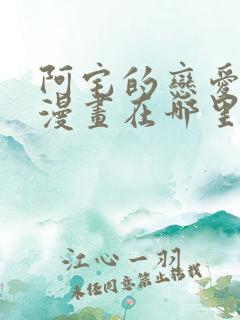 阿宅的戀愛
漫畫在哪里
江心一羽
未经同意禁止转载